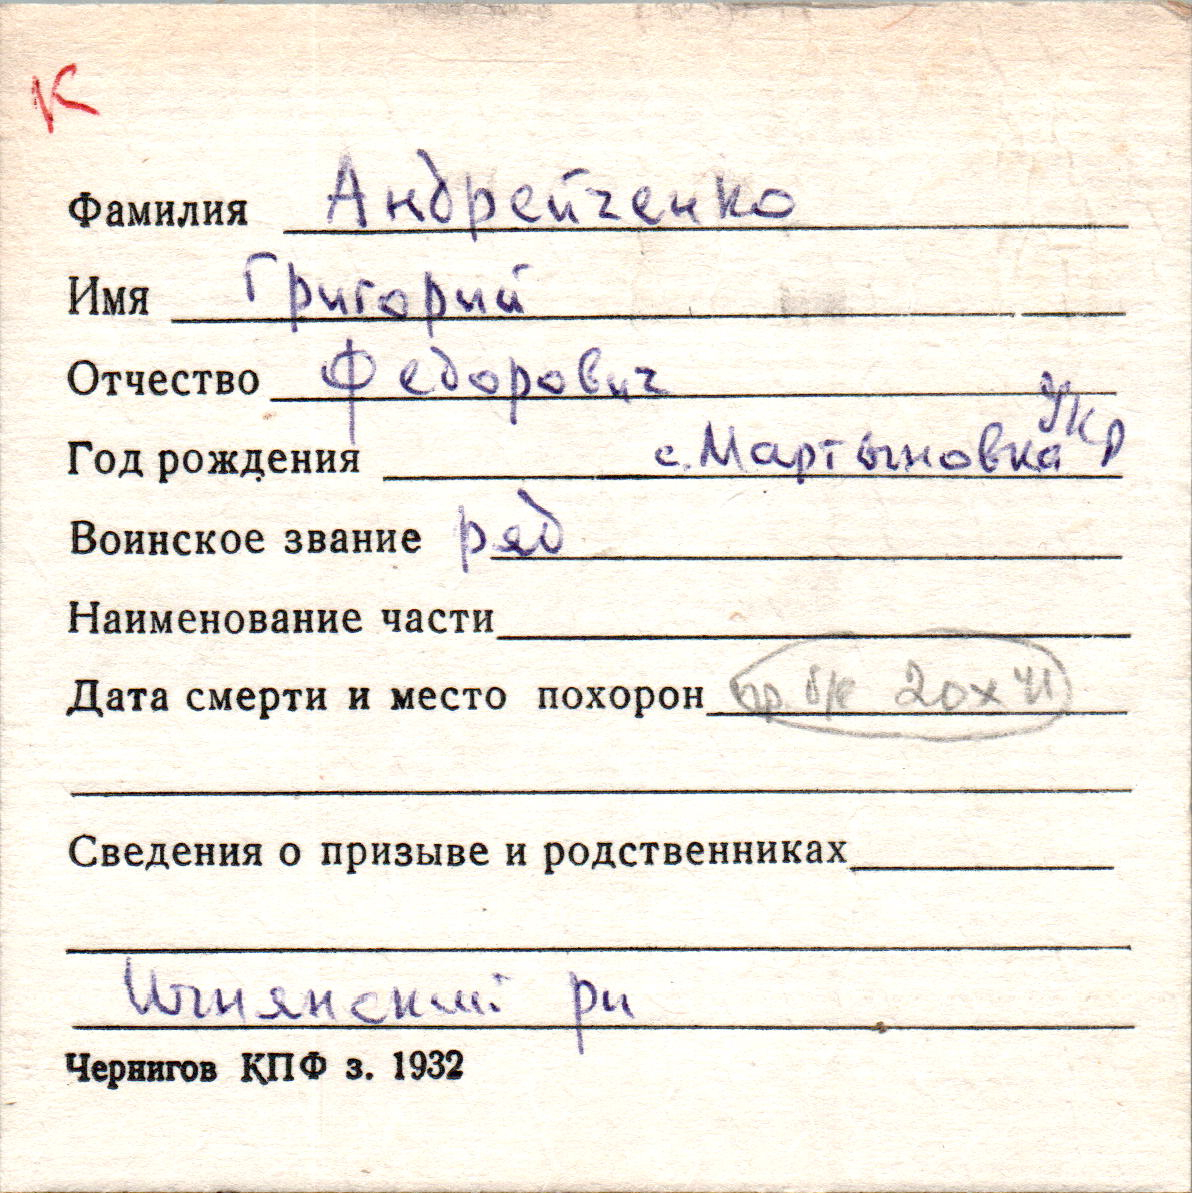 К
Фамилия Андрейченко
Имя Григорий
Отчество Федорович
укр
Год рождения с. Мартыновка
Воинское звание ряд
Наименование части
Дата смерти и место похорон пр. б/в 20 X 41
Сведения о призыве и родственниках
Ичнянский рн
Чернигов КПФ з. 1932